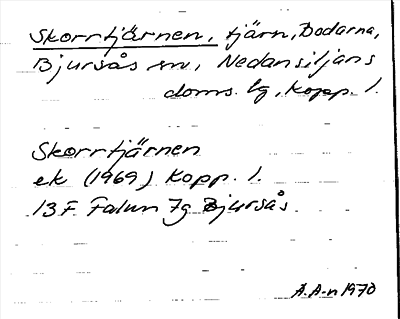 Skorrtjärnen, tjärn, Bodarna,
Bjursås sn., Nedansiljans
doms. lg, Kopp. l.
Skorrtjärnen
ek (1969) Kopp. l.
13 F. Falun 7g Bjursås.
Å.A-n 1970